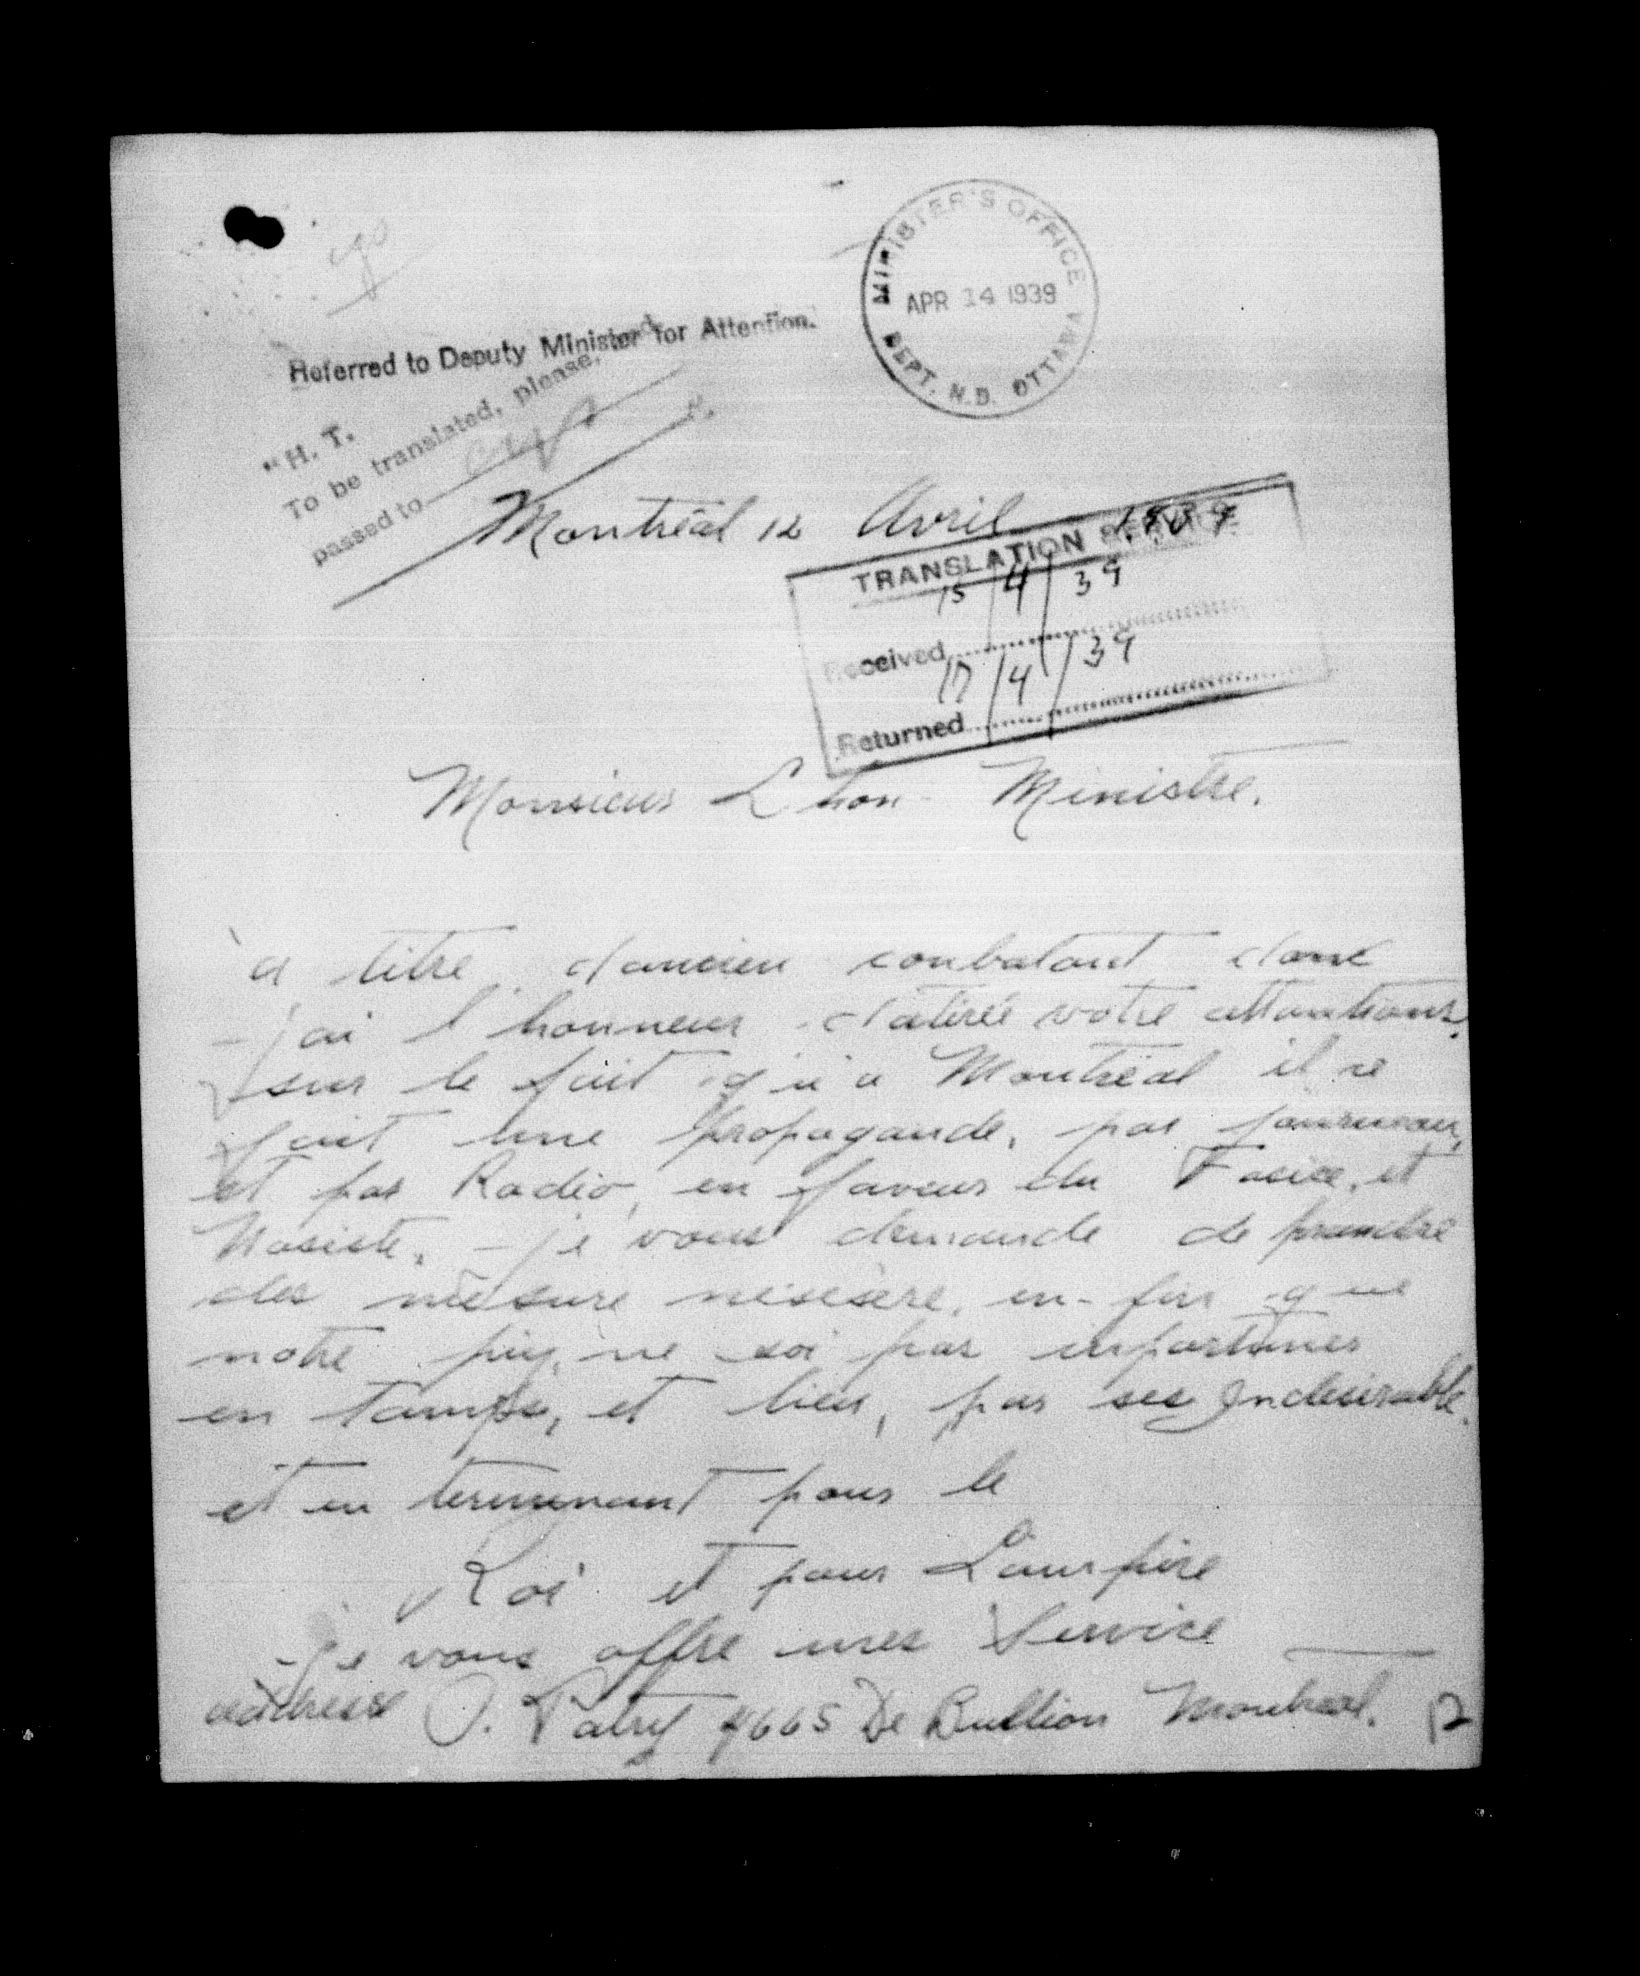 MINISTER'S OFFICE
APR 14 1939
DEPT. N.D. OTTAWA
Referred to Deputy Minister for Attention.
"H. T.
To be translated, please, and
passed to
Montréal 12 Avril 1939
TRANSLATION SERVICE
Received 15/4/39
Returned 17/4/39
Monsieur L hon. Ministre.
à titre d'ancien conbatant donc
j'ai l'honneur d'atirée votre attantions
sur le fait qu'a Montréal il se
fait une propagande, par journeau,
et par Radio, en faveur du Facice, et
Nasiste. - je vous demande de prandre
des mésure nésésère, en-fin que
notre piy, ne soi pas
en tamps, et lieu, par ses Indésirable.
et en terminant pour le
Roi et pour L'ampire
je vous offre mes Service
addresse O. Patry 4665 De Bullion Montréal.